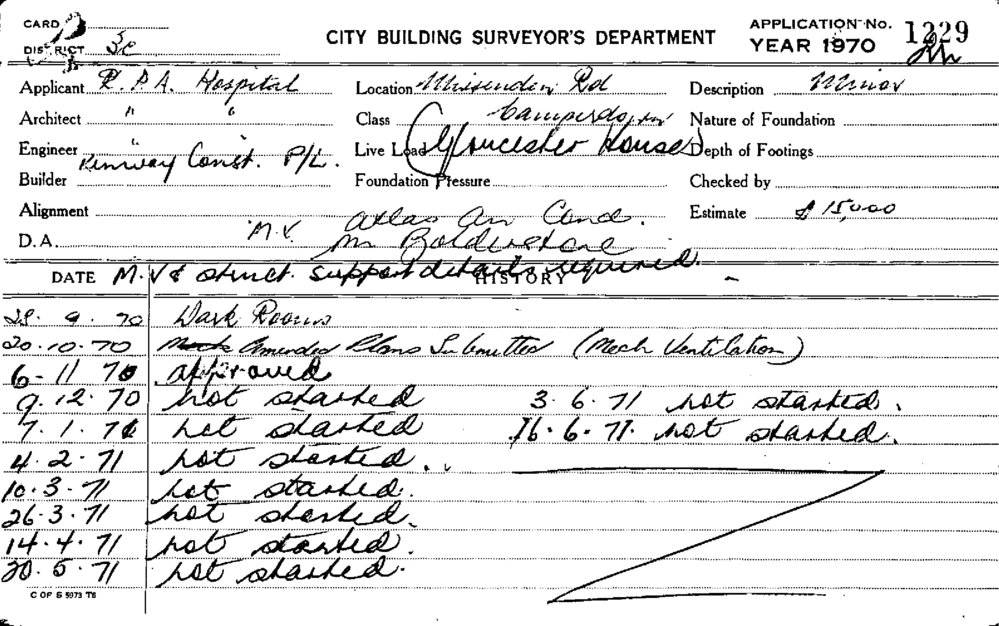 CARD 2
DISTRICT 3c
CITY BUILDING SURVEYOR'S DEPARTMENT
APPLICATION No. 1229
YEAR 1970
Applicant R.P.A. Hospital Location Missenden Rd Description Minor
Architect " " Class Camperdown Nature of Foundation
Engineer " Live Load (Gloucester House) Depth of Footings
Builder Const. P/L. Foundation Pressure Checked by
Alignment Estimate $ 15,000
D.A. M.V. Atlas Air Cond.
DATE M.V & struct. support details required. HISTORY
28. 9. 70 Dark Rooms
20.10.70 Amended Plans Submitted (Mech Ventilation)
6-11 70 approved
9.12.70 not started 3.6.71 not started.
7.1.71 not started 16.6.71. not started.
4.2.71 not started.
10.3.71 not started.
26.3.71 not started.
14.4.71 not started.
20.5.71 not started.
C OF S 5973 T6